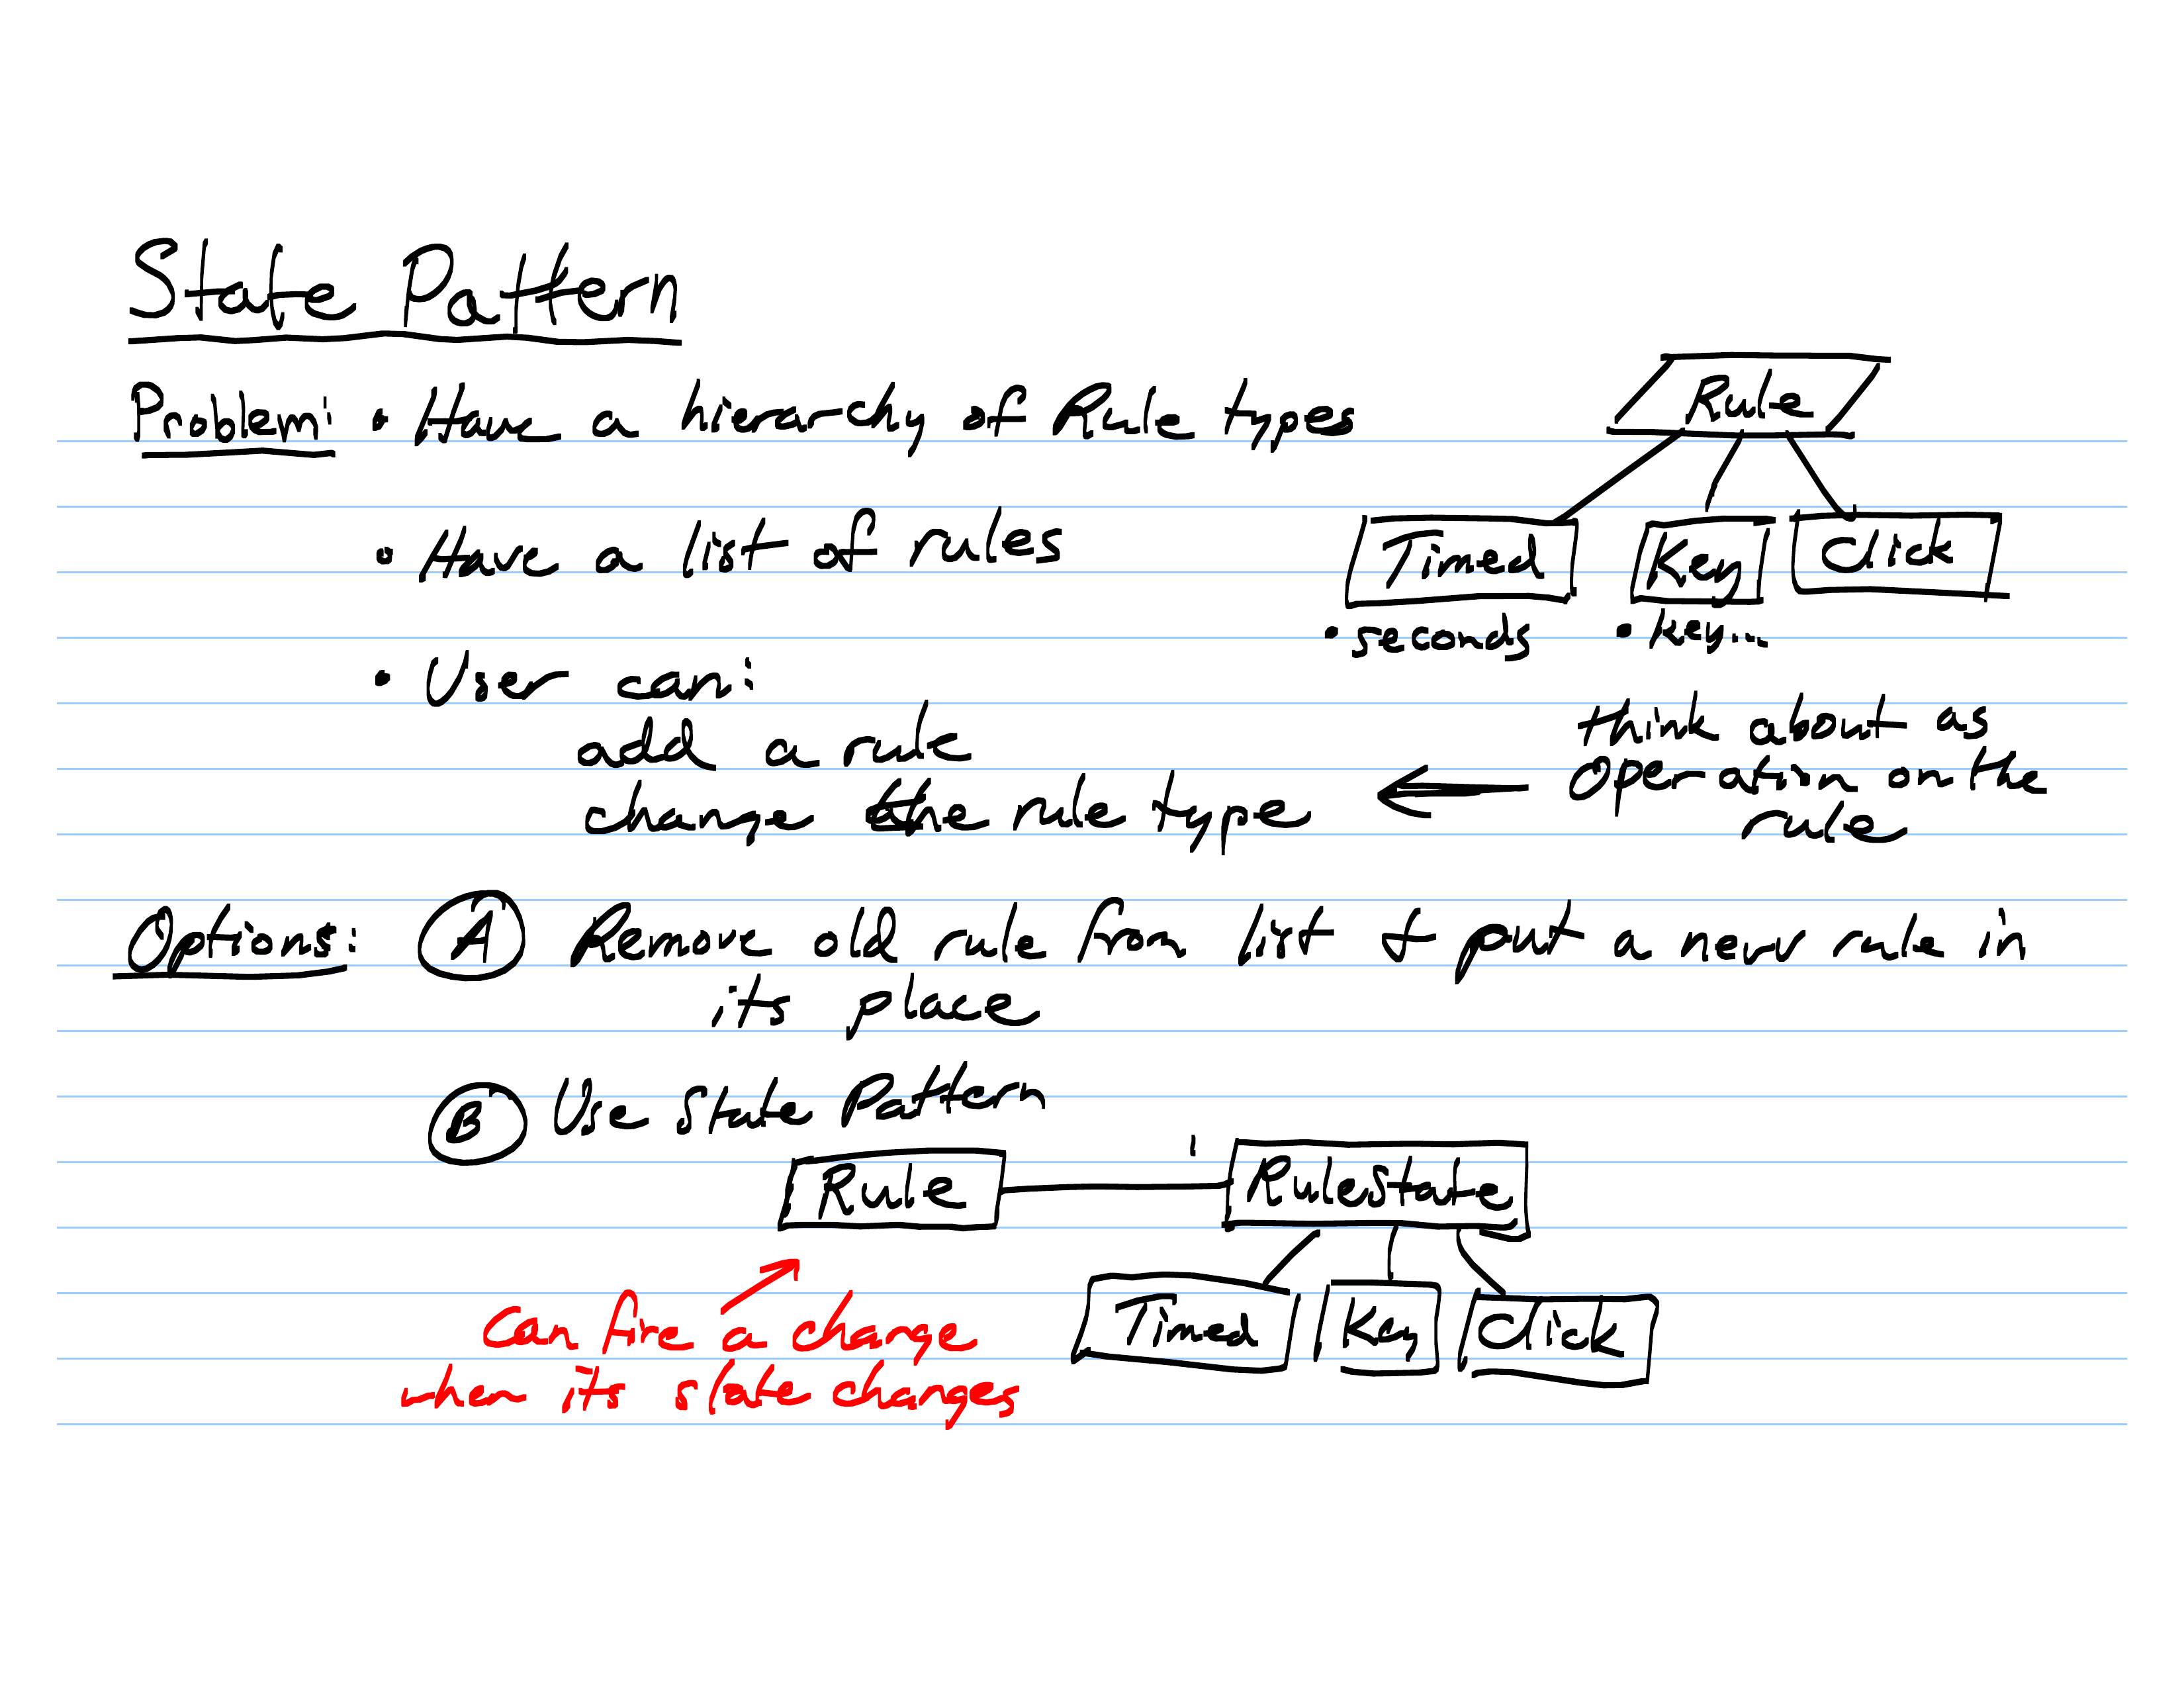 State Pattern
Problem: • Have a hierarchy of Rule types
Rule
• Have a list of rules
Timed Key Click
• seconds • key...
• User can:
add a rule
change the rule type
think about as
operation on the
rule
Options: A Remove old rule from list & put a new rule in
its place
B Use State Pattern
Rule RuleState
Timed Key Click
Can fire a change
when its state changes